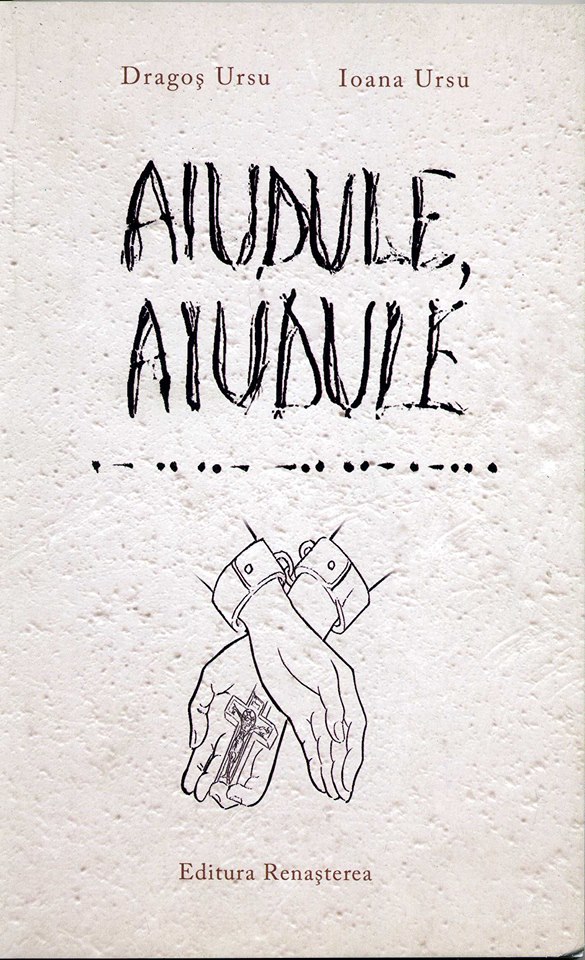 Dragoş Ursu Ioana Ursu
AIUDULE,
AIUDULE
Editura Renaşterea